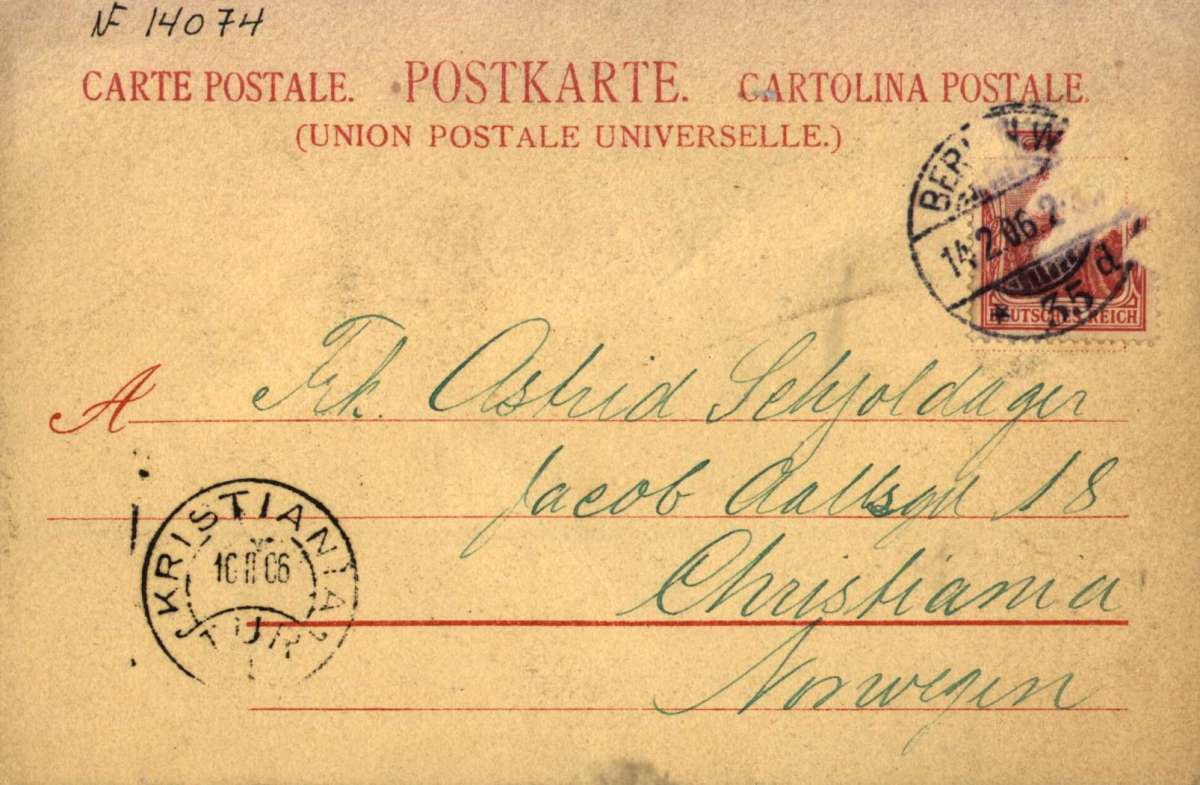 NF 14074
CARTE POSTALE. POSTKARTE. CARTOLINA POSTALE.
(UNION POSTALE UNIVERSELLE.)
BERLIN W
14.2.06 2
* 35 d
DEUTSCHES REICH
A Frk. Astrid Schjoldager
Jacob Aallsgd 18
Christiania
Norwegen
KRISTIANIA
II 06
TUR